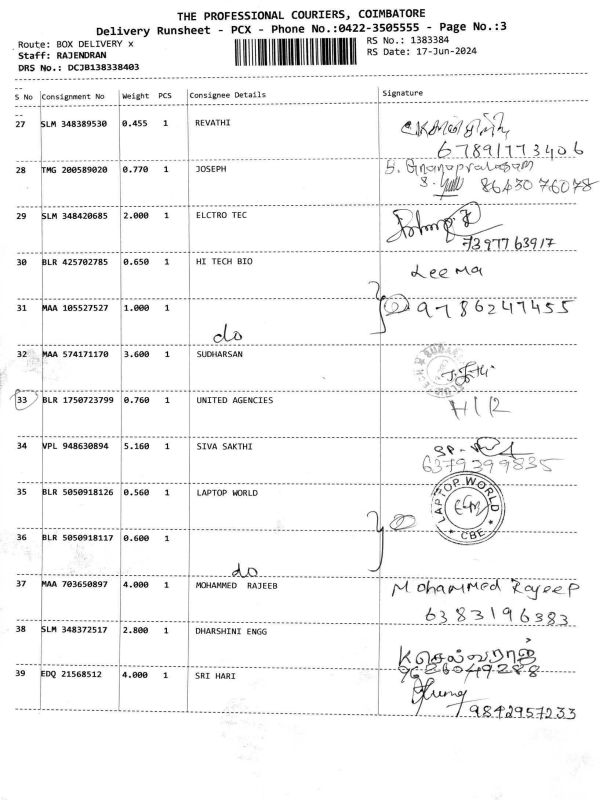 THE PROFESSIONAL COURIERS, COIMBATORE
Delivery Runsheet - PCX - Phone No.:0422-3505555 - Page No.:3
Route: BOX DELIVERY x RS No.: 1383384
Staff: RAJENDRAN RS Date: 17-Jun-2024
DRS No.: DCJB138338403
S No Consignment No Weight PCS Consignee Details Signature
27 SLM 348389530 0.455 1 REVATHI
67891773406
28 TMG 200589020 0.770 1 JOSEPH S. Gnanapragasam
8643076078
29 SLM 348420685 2.000 1 ELCTRO TEC
7397763917
30 BLR 425702785 0.650 1 HI TECH BIO Leema
31 MAA 105527527 1.000 1 9786247455
do
32 MAA 574171170 3.600 1 SUDHARSAN
33 BLR 1750723799 0.760 1 UNITED AGENCIES
34 VPL 948630894 5.160 1 SIVA SAKTHI
6379399835
35 BLR 5050918126 0.560 1 LAPTOP WORLD LAPTOP WORLD
CBE
36 BLR 5050918117 0.600 1
do
37 MAA 703650897 4.000 1 MOHAMMED RAJEEB Mohammed Rajeep
6383196383
38 SLM 348372517 2.800 1 DHARSHINI ENGG K செல்வராஜ்
9626049288
39 EDQ 21568512 4.000 1 SRI HARI
9842957233